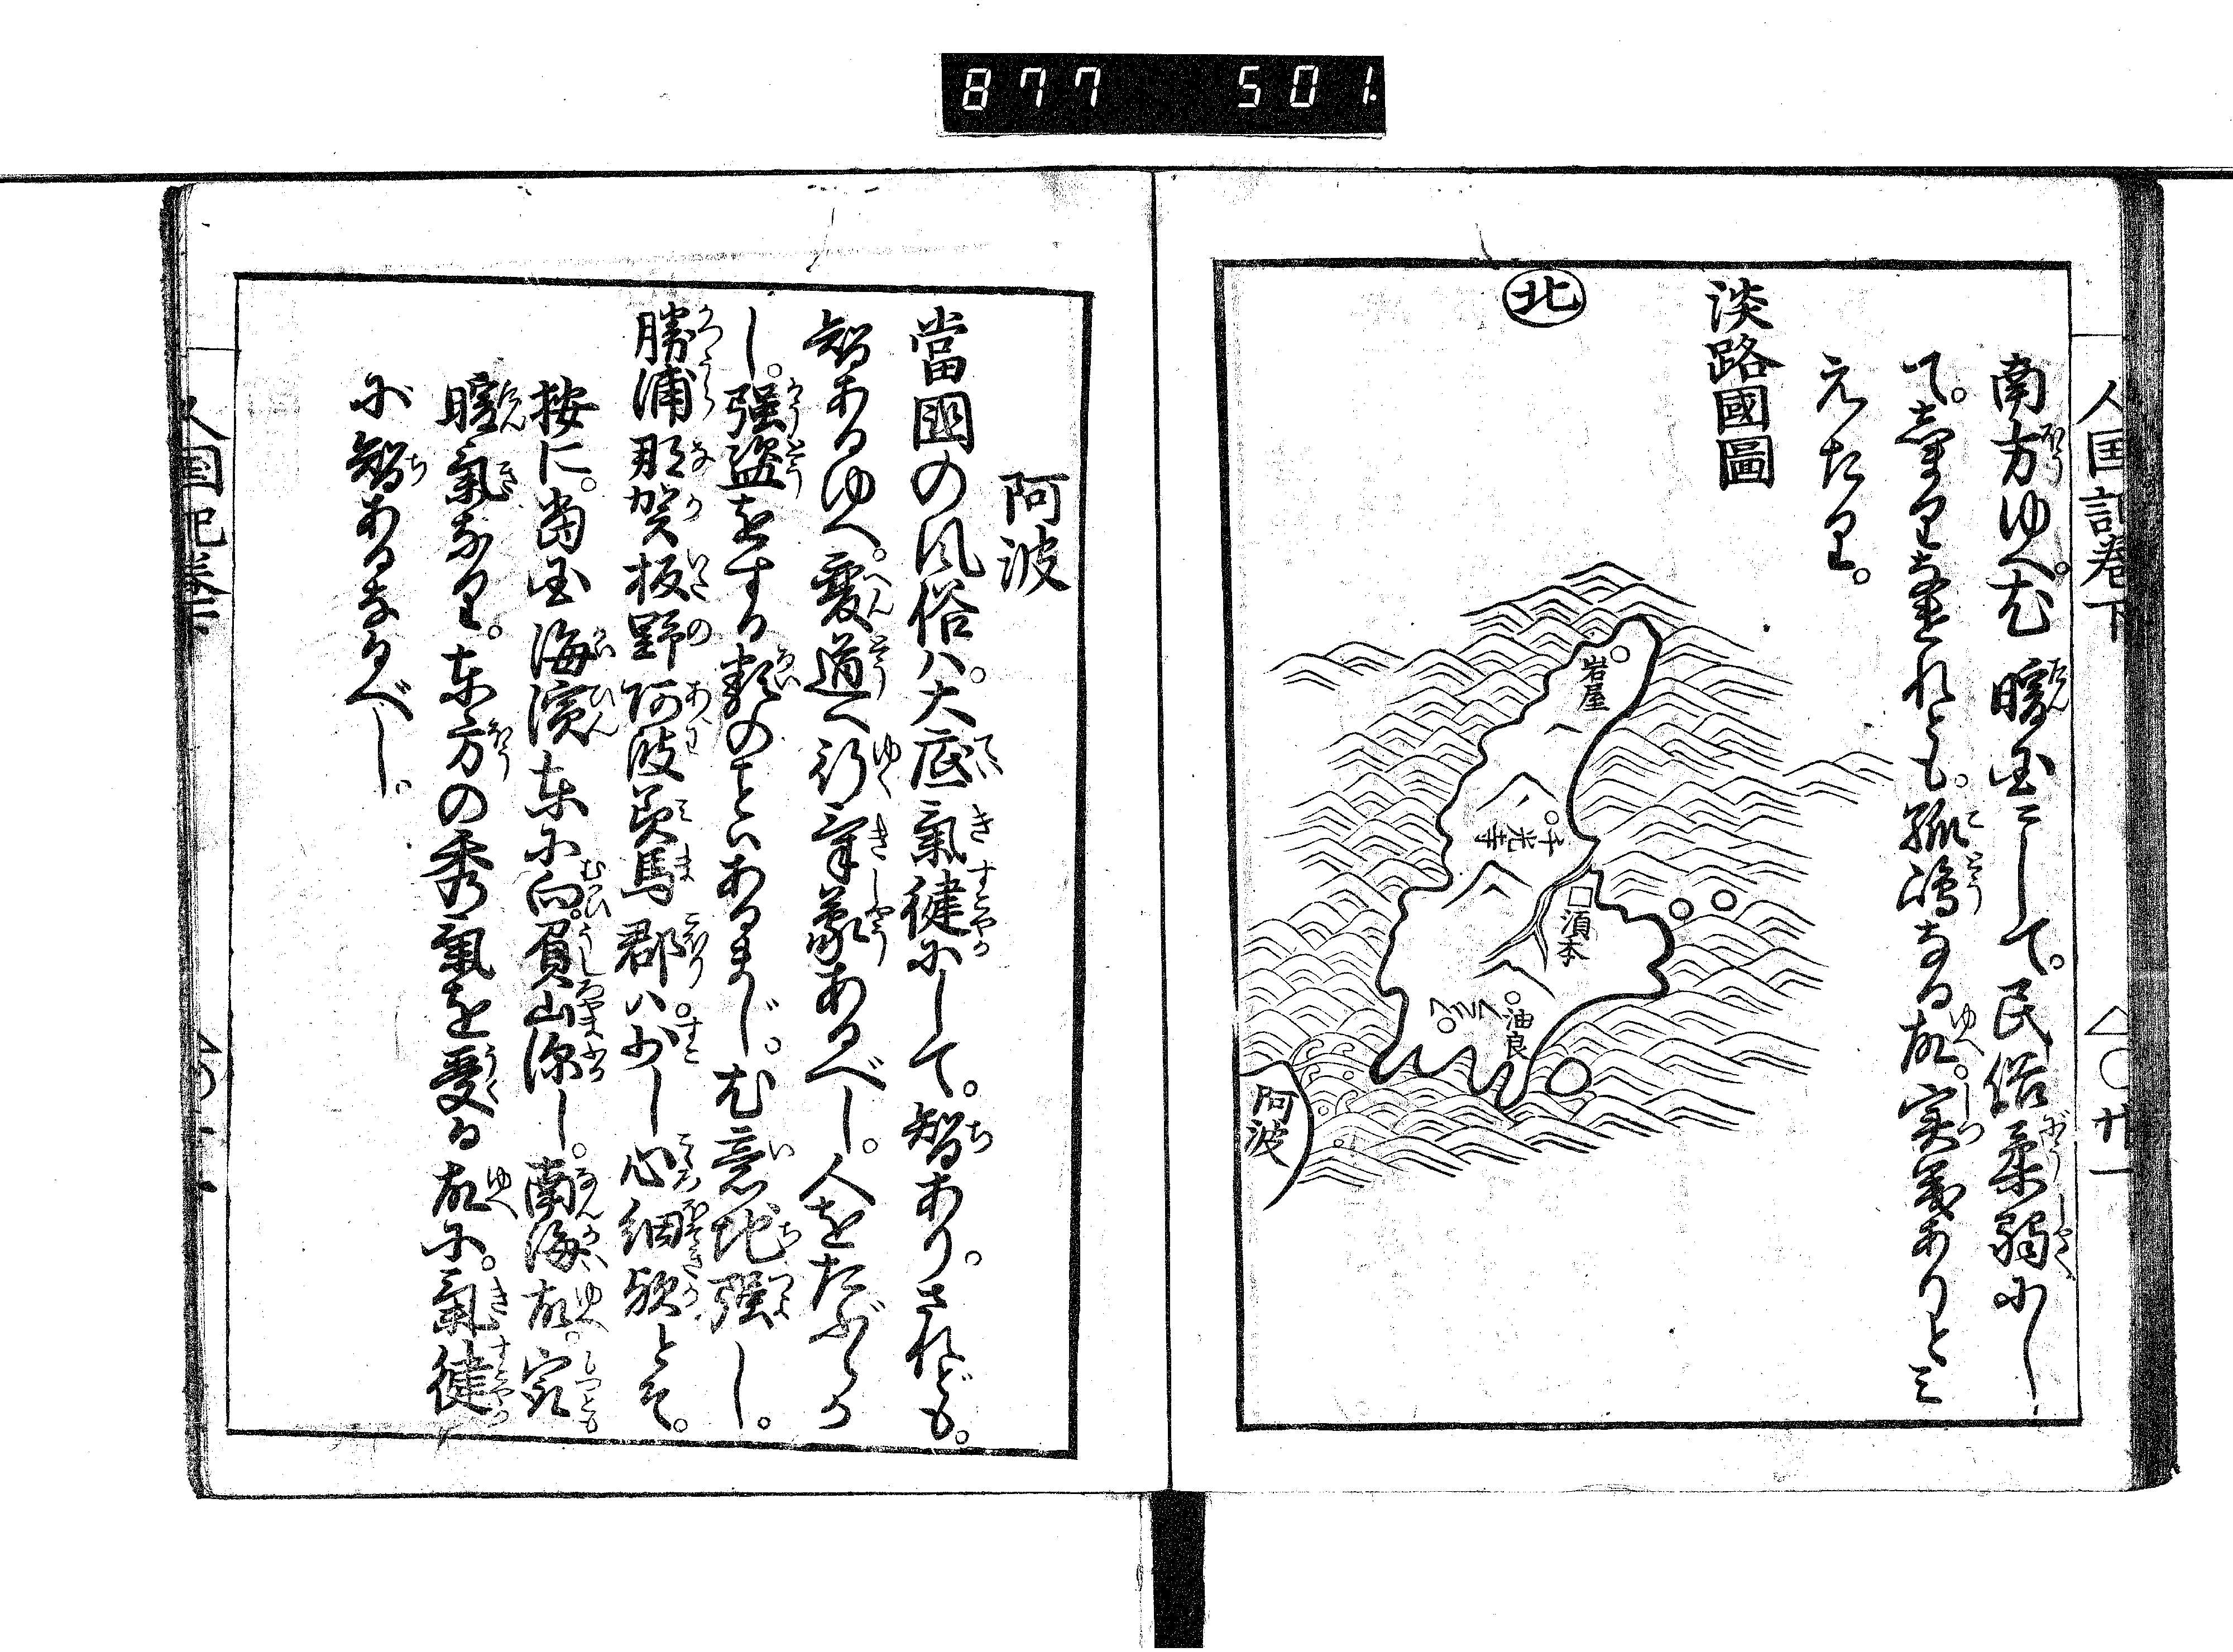 877 501.
人国記卷下
廿一
南方ゆへ尤暖国にして。民俗柔弱にし
て。
れとも。孤嶋なる故。実義ありとみ
えたり。
淡路國圖
北
岩屋
千光寺
須本
油良
阿波
阿波
當国の風俗ハ。大底氣健にして。智あり。されども。
智あるゆへ。変道へ行氣象あるべし。人をたぶらか
し。强盗をする類のことハあるまじ。尤意地强し。
勝浦那賀板野阿波美馬郡ハ。少し心細欤とそ。
按に。当国海濱東に向。負山深し。南海故。実
暖氣なり。東方の秀氣を受る故に。氣健
に智あるなるべし。
人国記卷下